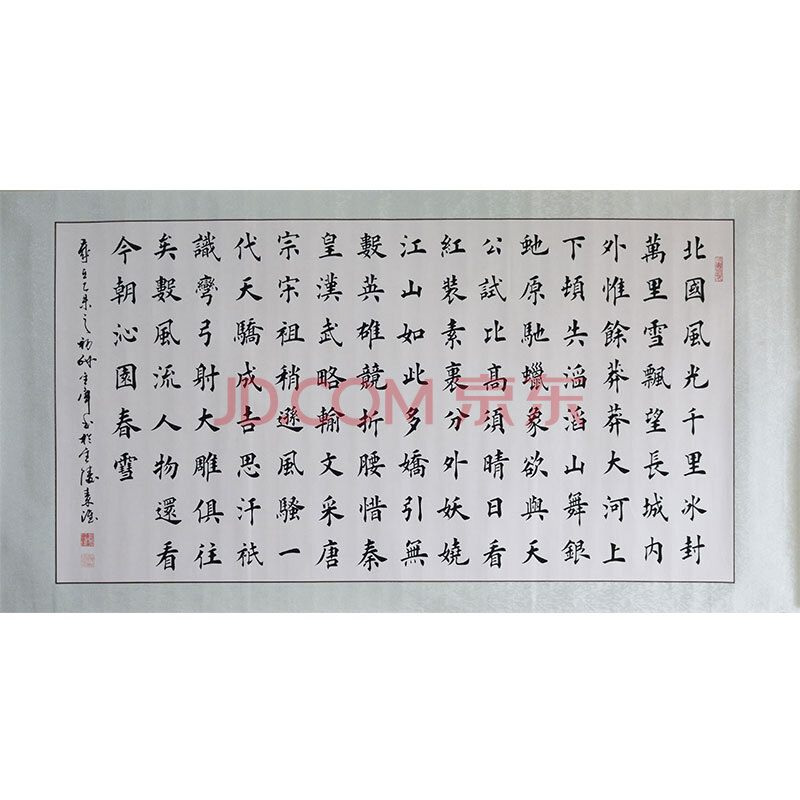 北國風光千里冰封
萬里雪飄望長城内
外惟餘莽莽大河上
下頓失滔滔山舞銀
虵原馳蠟象欲與天
公試比高須晴日看
紅裝素裹分外妖嬈
江山如此多嬌引無
數英雄競折腰惜秦
皇漢武略輸文采唐
宗宋祖稍遜風騷一
代天驕成吉思汗祇
識彎弓射大雕俱往
矣數風流人物還看
今朝沁園春雪
歲在乙未之初秋書於金陵
JD.COM 京东